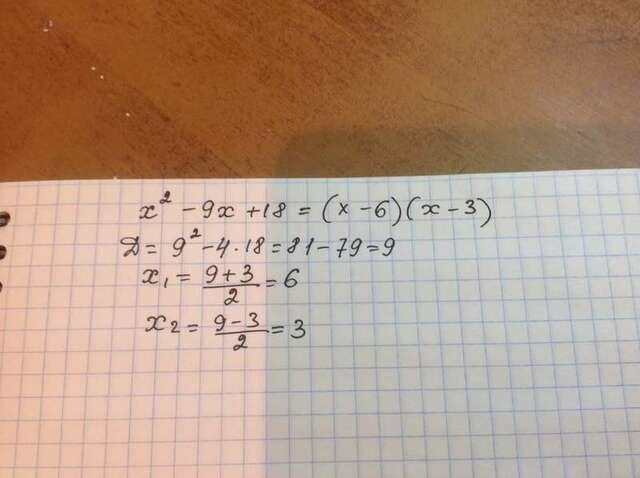 x² - 9x + 18 = (x - 6)(x - 3)
Д = 9² - 4·18 = 81 - 79 = 9
x₁ = (9+3)/2 = 6
x₂ = (9-3)/2 = 3